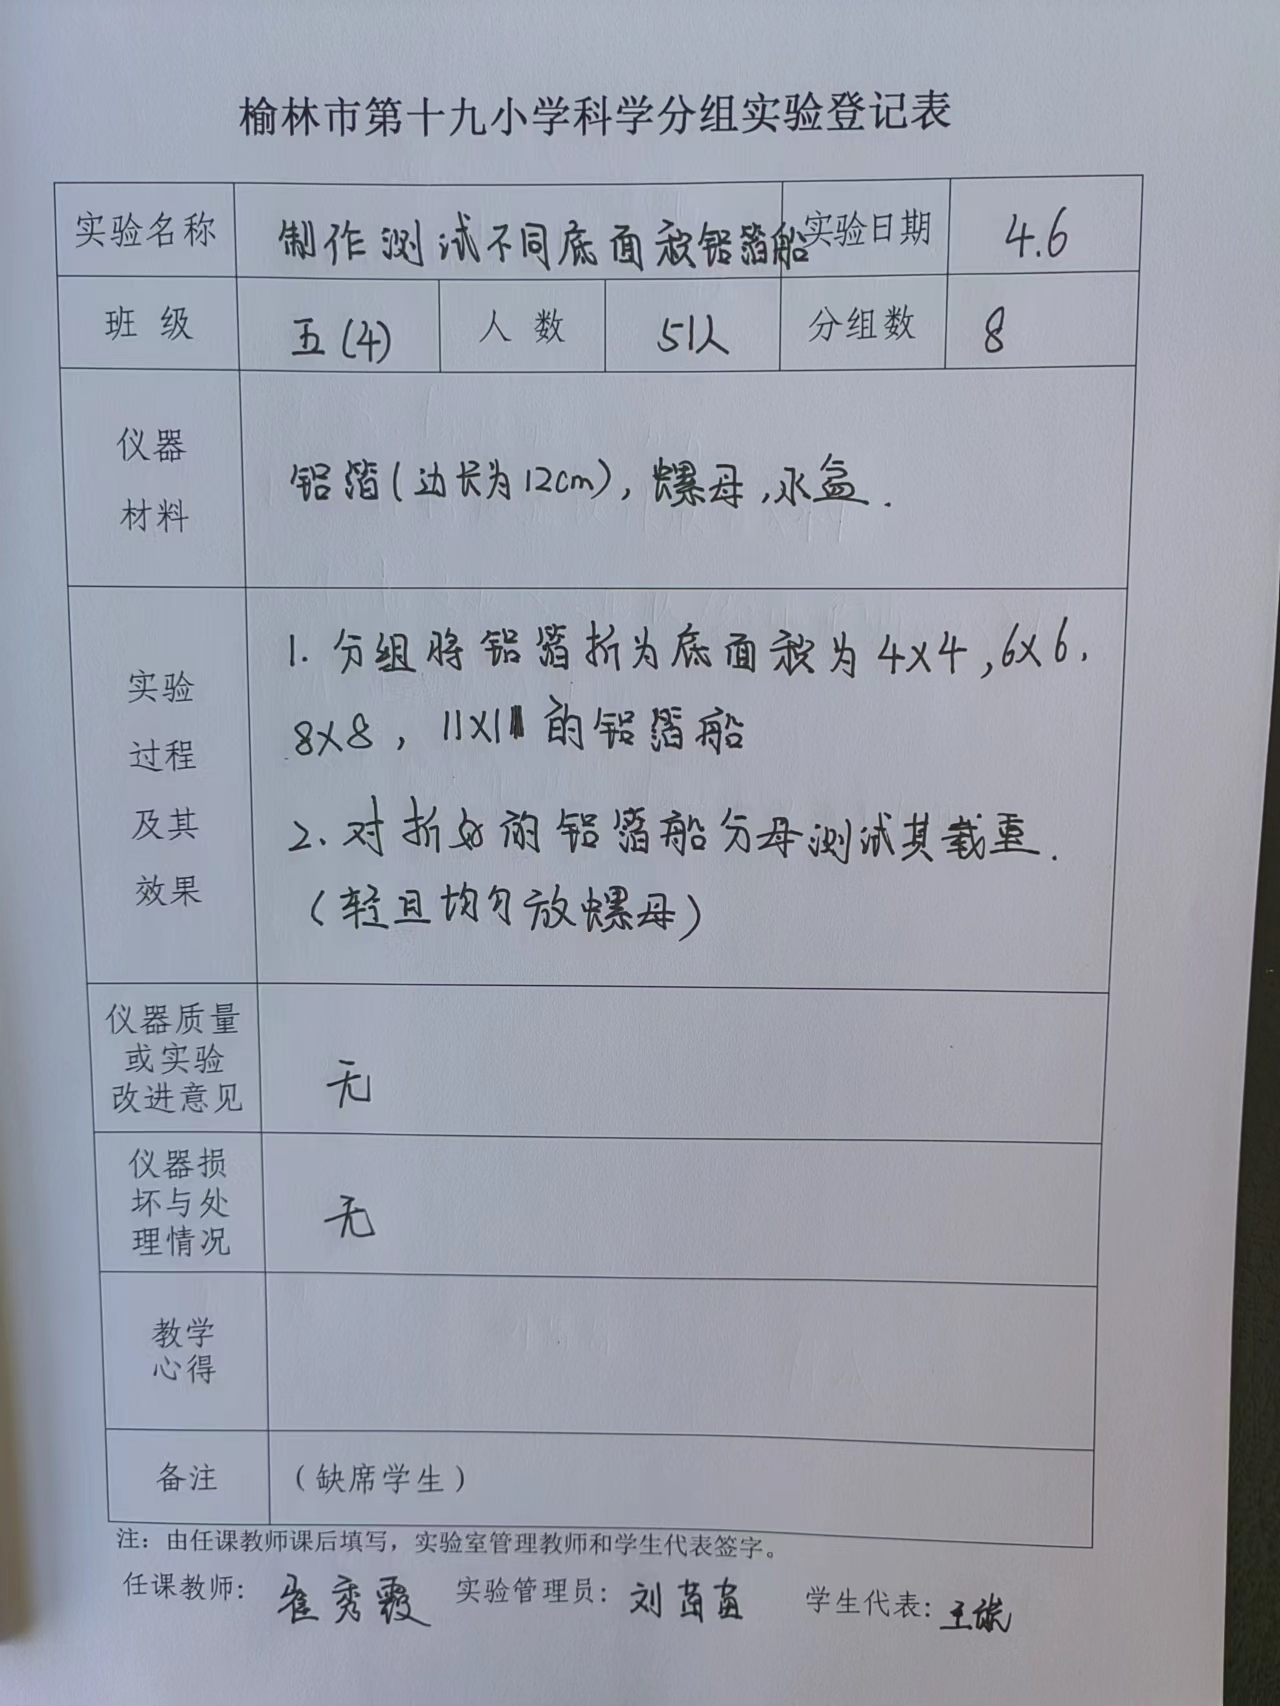 榆林市第十九小学科学分组实验登记表
实验名称 制作测试不同底面积铝箔船 实验日期 4.6
班级 五(4) 人数 51人 分组数 8
仪器
材料
铝箔(边长为12cm),螺母,水盆.
实验
过程
及其
效果
1. 分组将铝箔折为底面积为4×4,6×6,
8×8, 11×11的铝箔船
2、对折好的铝箔船分母测试其载重.
(轻且均匀放螺母)
仪器质量
或实验
改进意见
无
仪器损
坏与处
理情况
无
教学
心得
备注 (缺席学生)
注:由任课教师课后填写,实验室管理教师和学生代表签字。
任课教师: 崔秀霞 实验管理员: 刘苗苗 学生代表: 王